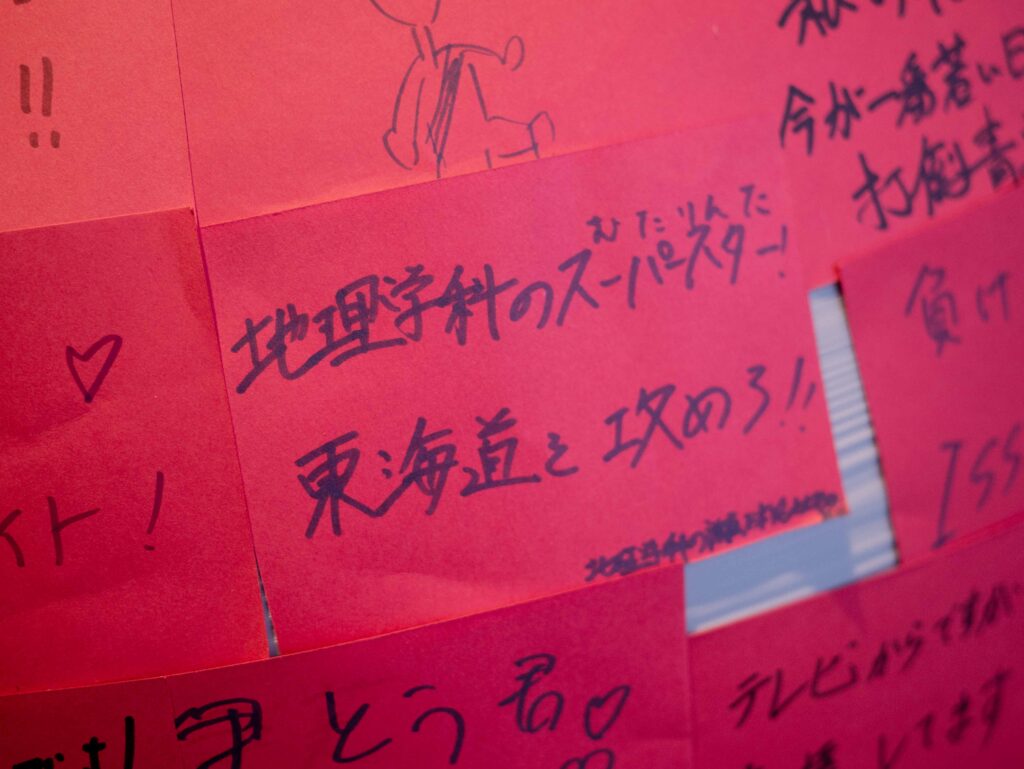 !!
今が一番若い日
打倒青
むたりんた
地理学科のスーパースター!
東海道を攻めろ!!
地理学科の
♡
イト!
負け
ISS
とう君♡
テレビからですが
してます